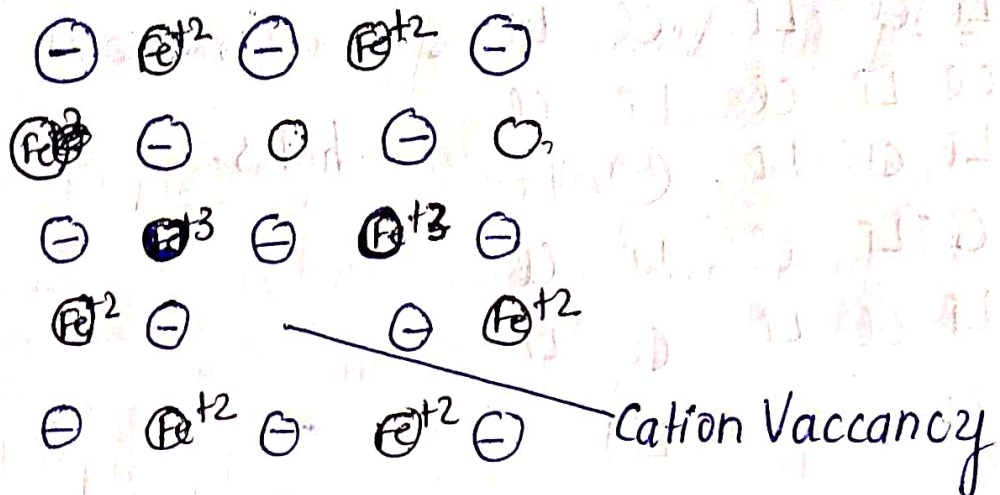 ⊖ Fe+2 ⊖ Fe+2 ⊖
Fe ⊖ ○ ⊖ ○
⊖ Fe+3 ⊖ Fe+3 ⊖
Fe+2 ⊖ ⊖ Fe+2
⊖ Fe+2 ⊖ Fe+2 ⊖
Cation Vaccancy